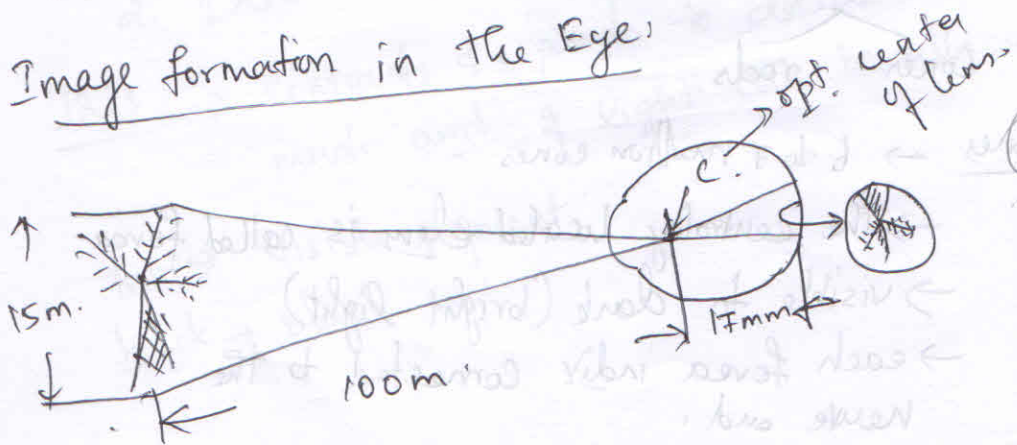 Image formation in the Eye.
opt. center
of lens.
C.
15m.
17mm
100m.